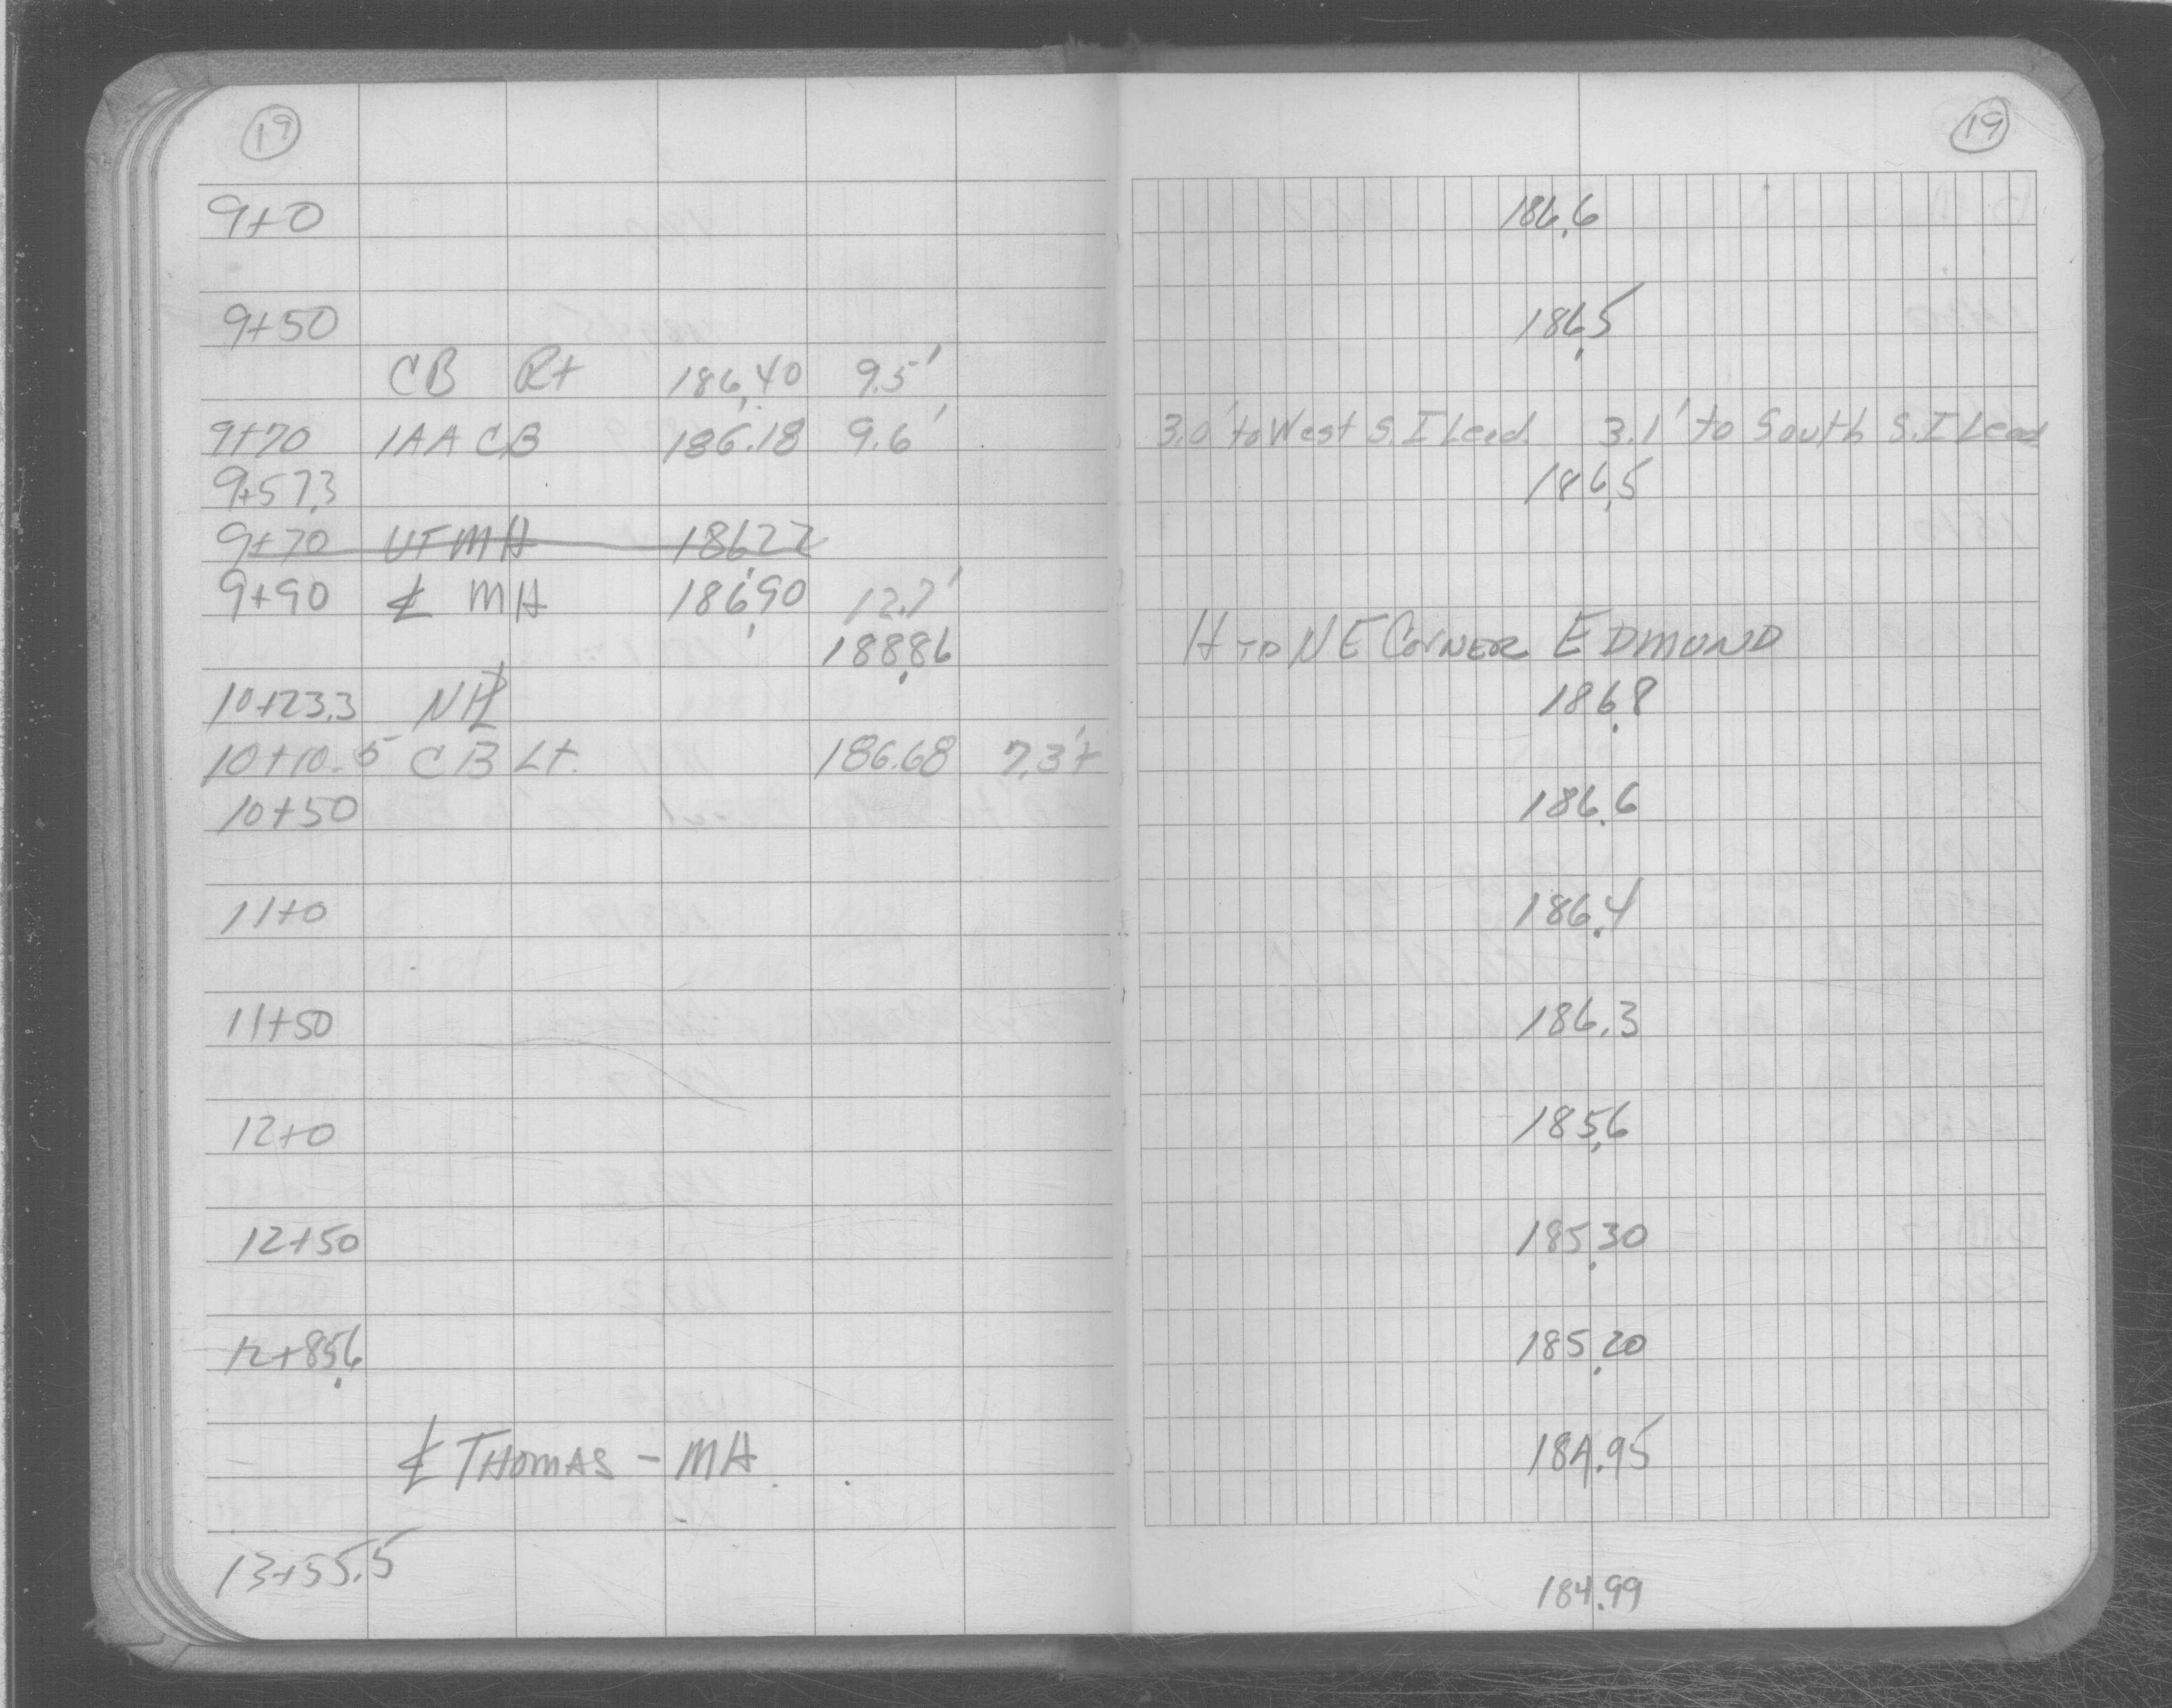 19 19
9+0 186.6
9+50 186.5
CB Rt 186.40 9.5'
9+70 IAA CB 186.18 9.6' 3.0' to West S.I Lead 3.1' to South S.I Lead
9+57.3 186.5
9+70 UTMH 186.22
9+90 ℄ MH 186.90 12.7'
188.86 H TO NE CORNER EDMOND
10+23.3 186.8
10+10.5 CB Lt. 186.68 7.3'+
10+50 186.6
11+0 186.4
11+50 186.3
12+0 185.6
12+50 185.30
12+85.6 185.20
℄ THOMAS - MH 184.95
13+55.5 184.99